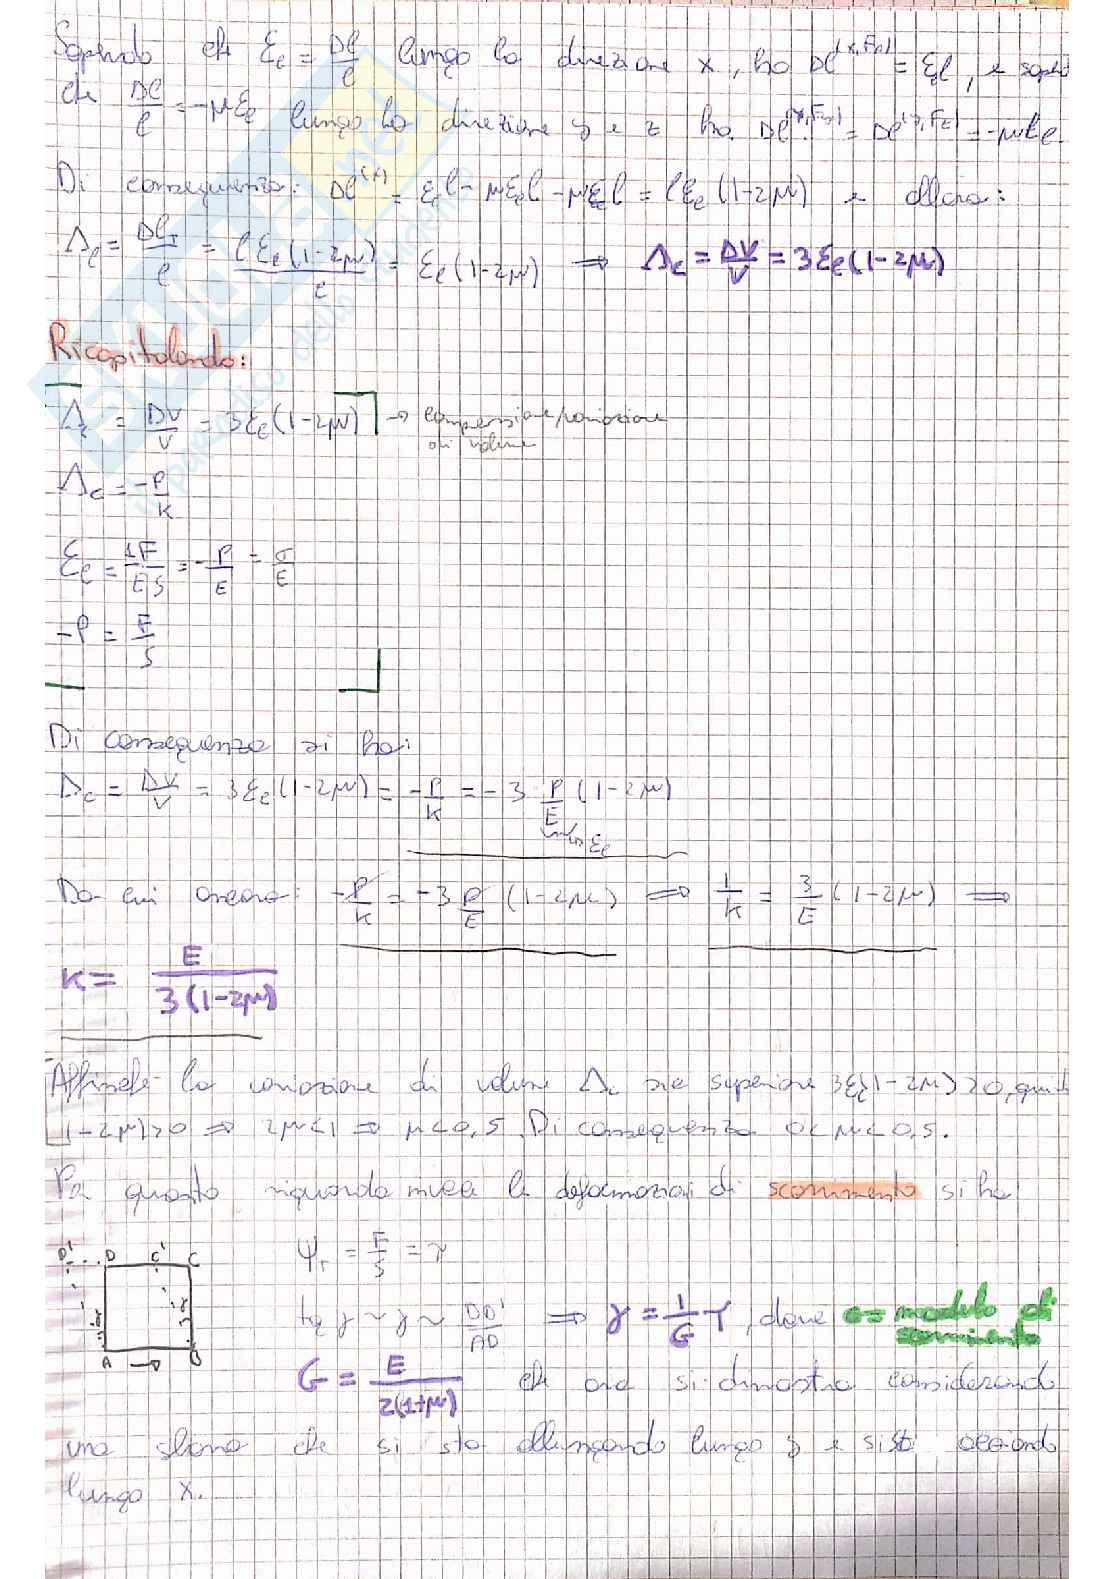 Sapendo che εₑ = Δl/l lungo la direzione x, ho Δl^(x,Fx) = εₑl, e
che Δl/l = -μεₑ lungo la direzione y e z ho
Di conseguenza: Δl^(x) = εₑl - μεₑl - μεₑl = lεₑ(1-2μ) e allora:
Δₑ = Δl_T/l = lεₑ(1-2μ)/l = εₑ(1-2μ) ⇒ Δc = ΔV/V = 3εₑ(1-2μ)
Ricapitolando:
Δc = ΔV/V = 3εₑ(1-2μ) → compressione/variazione
di volume
Δc = -P/K
εₑ = 1/E F/S = -P/E = σ/E
-P = F/S
Di conseguenza si ha:
Δc = ΔV/V = 3εₑ(1-2μ) = -P/K = -3 P/E (1-2μ)
εₑ
Da cui ancora: -P/K = -3 P/E (1-2μ) ⇒ 1/K = 3/E (1-2μ) ⇒
K = E/3(1-2μ)
Affinché la variazione di volume Δc sia superiore 3εₑ(1-2μ)>0, quindi
(1-2μ)>0 ⇒ 2μ<1 ⇒ μ<0,5. Di conseguenza 0<μ<0,5.
Per quanto riguarda invece le deformazioni di scorrimento si ha
D' D C' C
= F/S = τ
tg γ ~ γ ~ DD'/AD ⇒ γ = 1/G τ, dove G = modulo di
scorrimento
A → B
G = E/2(1+μ) che ora si dimostra considerando
una sbarra che si sta allungando lungo y e si sta
lungo x.